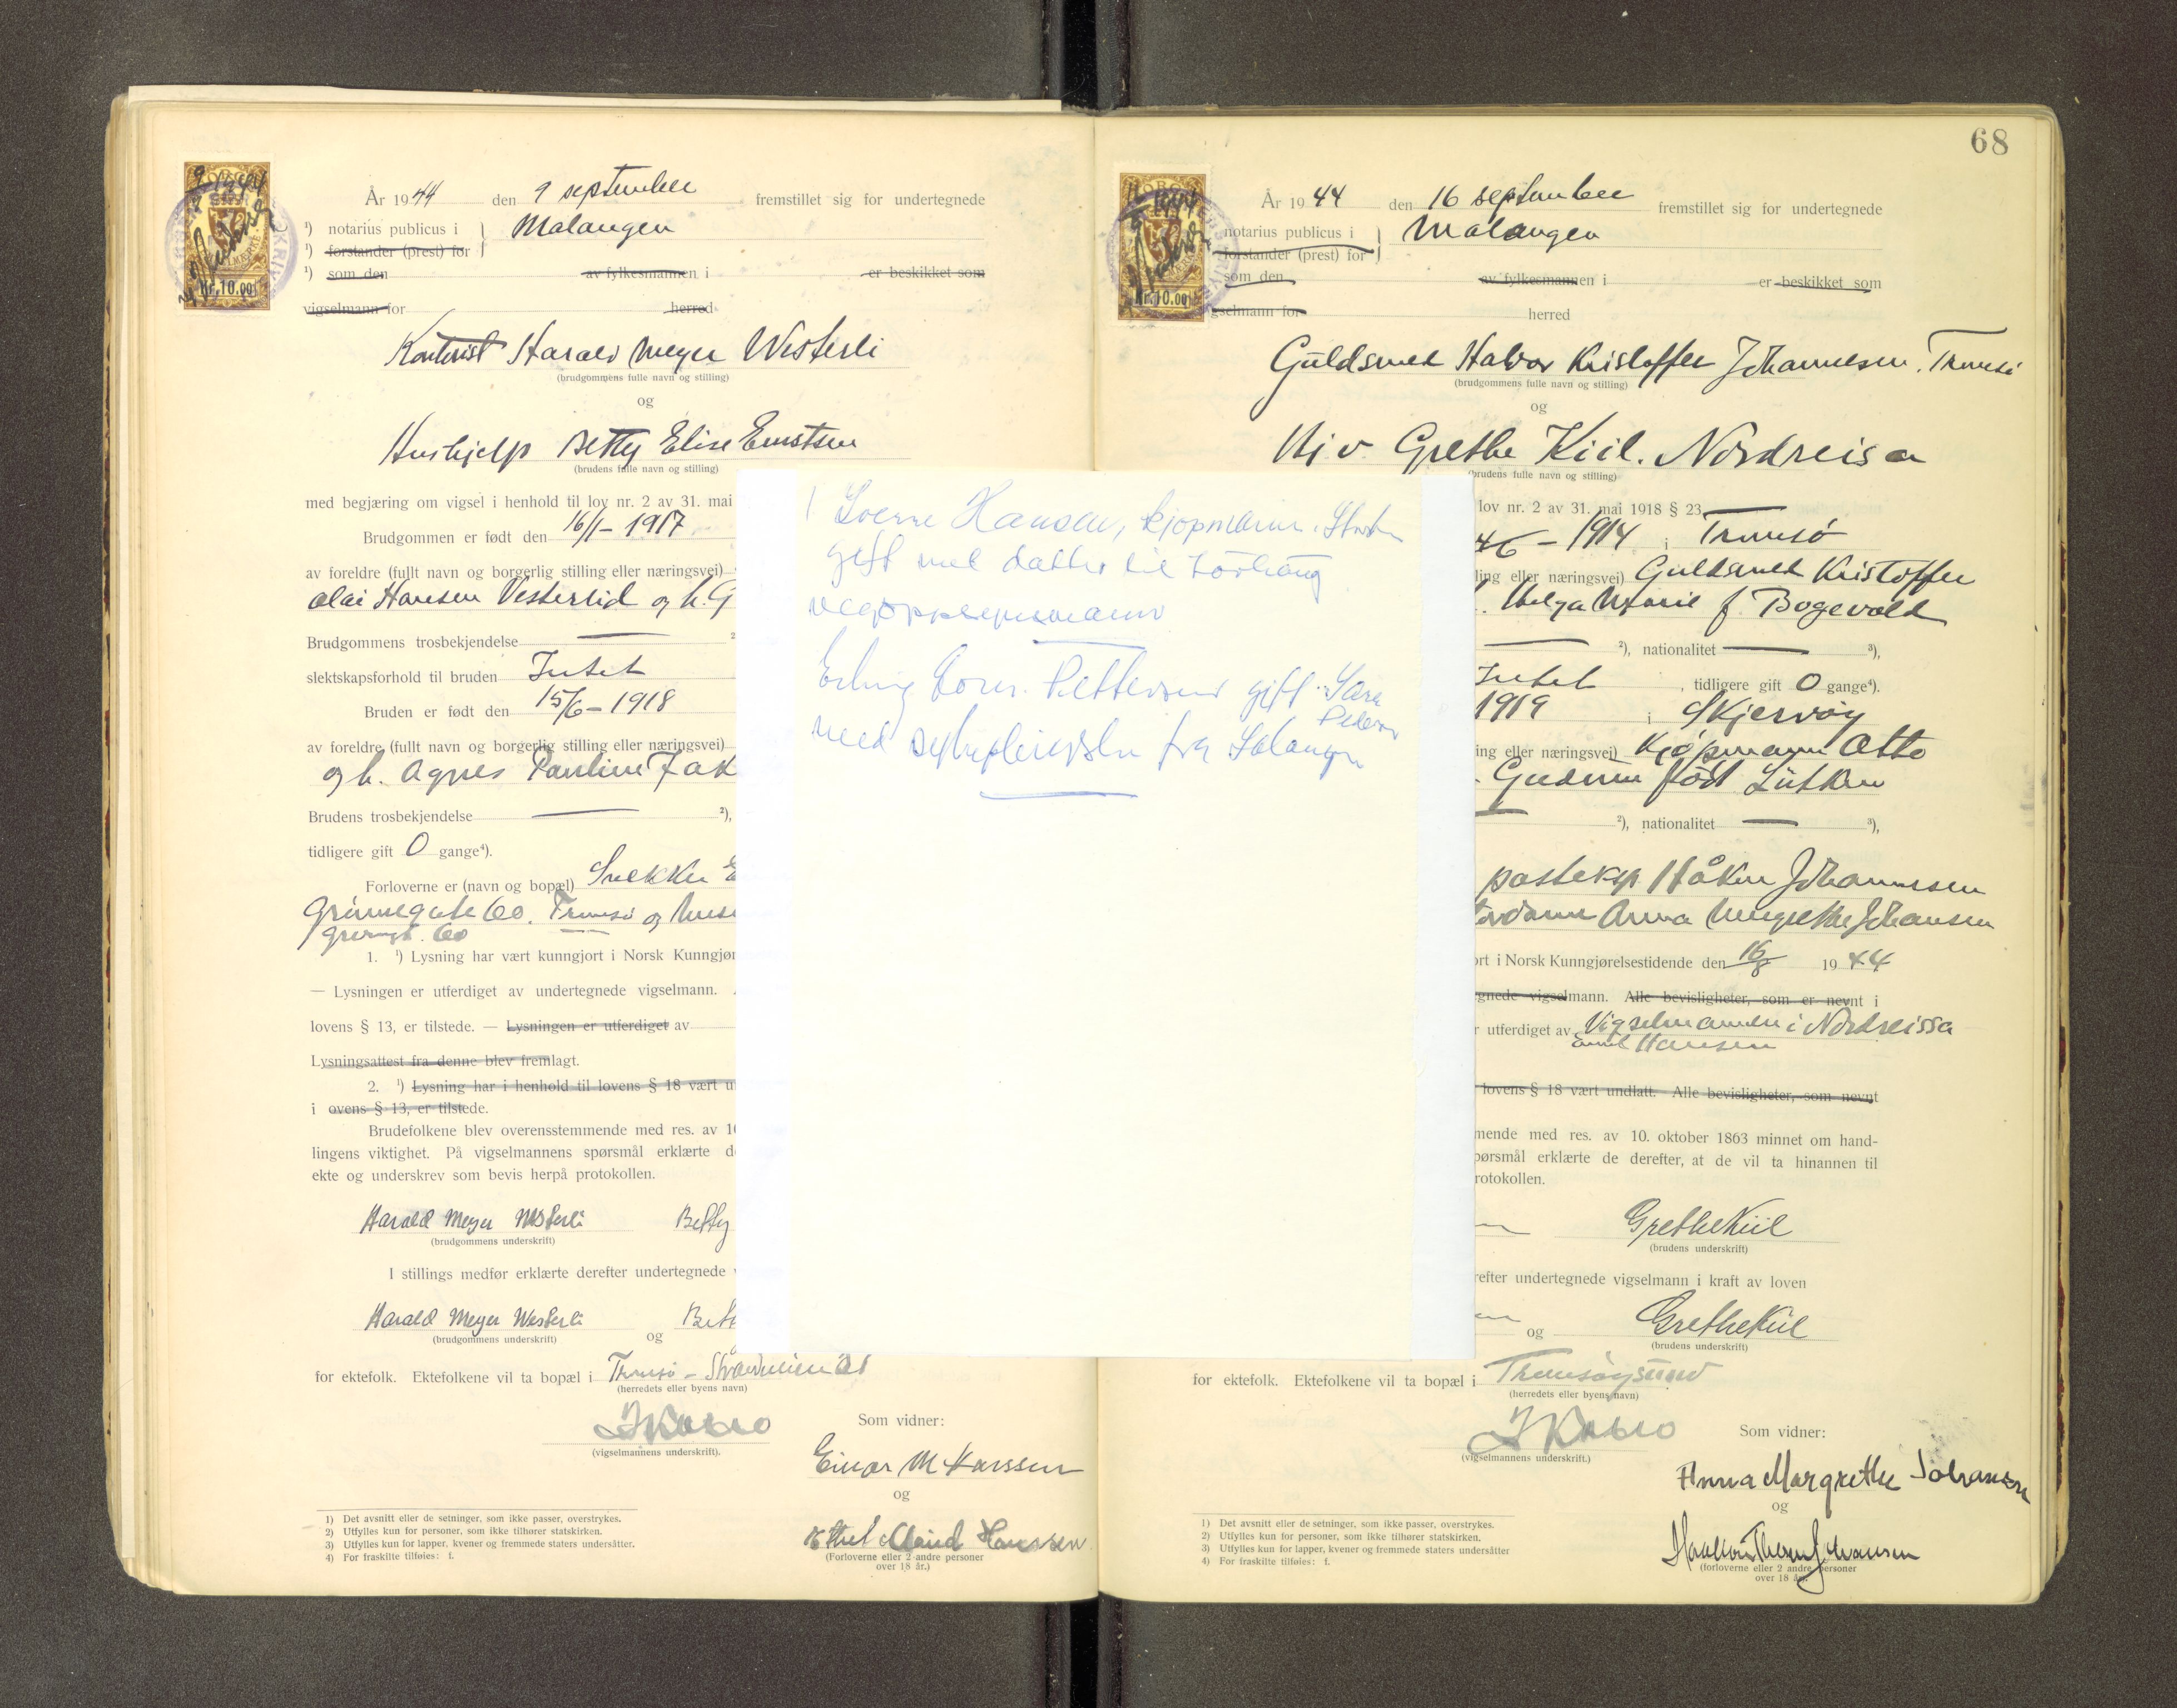 År 1944 den 9 september fremstillet sig for undertegnede
¹) notarius publicus i Malangen
¹) forstander (prest) for
¹) som den av fylkesmannen i er beskikket som
vigselmann for herred
Kontorist Harald Meyer Westerli
(brudgommens fulle navn og stilling)
og
Hushjelp Betty Elise Ernstsen
(brudens fulle navn og stilling)
med begjæring om vigsel i henhold til lov nr. 2 av 31. mai
Brudgommen er født den 16/1 - 1917
av foreldre (fullt navn og borgerlig stilling eller næringsvei)
Olai Hansen Vesterlid og h. G
Brudgommens trosbekjendelse —
slektskapsforhold til bruden Intet
Bruden er født den 15/6 - 1918
av foreldre (fullt navn og borgerlig stilling eller næringsvei)
og h. Agnes Pauline Jak
Brudens trosbekjendelse — ²),
tidligere gift 0 gange⁴).
Forloverne er (navn og bopæl)
Grønnegate 60. Tromsø og
60
1. ¹) Lysning har vært kunngjort i Norsk Kunngjør
— Lysningen er utferdiget av undertegnede vigselmann.
lovens § 13, er tilstede. — Lysningen er utferdiget av
Lysningsattest fra denne blev fremlagt.
2. ¹) Lysning har i henhold til lovens § 18 vært u
i ovens § 13, er tilstede.
Brudefolkene blev overensstemmende med res. av 10
lingens viktighet. På vigselmannens spørsmål erklærte d
ekte og underskrev som bevis herpå protokollen.
Harald Meyer Westerli Betty
(brudgommens underskrift)
I stillings medfør erklærte derefter undertegnede
Harald Meyer Westerli og Bett
(brudgommens underskrift)
for ektefolk. Ektefolkene vil ta bopæl i Tromsø -
(herredets eller byens navn)
(vigselmannens underskrift).
Som vidner:
Einar M Hanssen
og
Ethel Maud Hanssen
(Forloverne eller 2 andre personer
over 18 år.)
1) Det avsnitt eller de setninger, som ikke passer, overstrykes.
2) Utfylles kun for personer, som ikke tilhører statskirken.
3) Utfylles kun for lapper, kvener og fremmede staters undersåtter.
4) For fraskilte tilføies: f.
Kr.10.00
Sverre Hansen, kjøpmann,
gift med datter til
vegoppsynsmann
Erling Pettersen gift Sara
Peders
med sykepleierske fra Salangen
68
År 1944 den 16 september fremstillet sig for undertegnede
notarius publicus i Malangen
forstander (prest) for
som den av fylkesmannen i er beskikket som
gselmann for herred
Guldsmed Halvor Kristoffer Johannesen. Tromsø
(brudgommens fulle navn og stilling)
og
Grethe Kiil. Nordreisa
(brudens fulle navn og stilling)
lov nr. 2 av 31. mai 1918 § 23
- 1914 i Tromsø
ling eller næringsvei) Guldsmed Kristoffer
Helga Marie f. Bogevald
— ²), nationalitet — ³),
Intet, tidligere gift 0 gange⁴).
1919 i Skjervøy
ing eller næringsvei) Kjøpmann Otto
Gudrun født Lütken
— ²), nationalitet — ³),
posteksp. Håkon Johannesen
Anna Margrethe Johansen
ort i Norsk Kunngjørelsestidende den 16/8 1944
gnede vigselmann. Alle bevisligheter, som er nevnt i
r utferdiget av Vigselmannen i Nordreissa
Emil Hansen
lovens § 18 vært undlatt. Alle bevisligheter, som nevnt
mende med res. av 10. oktober 1863 minnet om hand-
pørsmål erklærte de derefter, at de vil ta hinannen til
rotokollen.
Grethe Kiil
(brudens underskrift)
refter undertegnede vigselmann i kraft av loven
og Grethe Kiil
(brudens underskrift)
for ektefolk. Ektefolkene vil ta bopæl i Tromsøysund
(herredets eller byens navn)
(vigselmannens underskrift.)
Som vidner:
Anna Margrethe Johansen
og
(forloverne eller 2 andre personer
over 18 år.)
1) Det avsnitt eller de setninger, som ikke passer, overstrykes.
2) Utfylles kun for personer, som ikke tilhører statskirken.
3) Utfylles kun for lapper, kvener og fremmede staters undersåtter
4) For fraskilte tilføies: f.
Kr.10.00